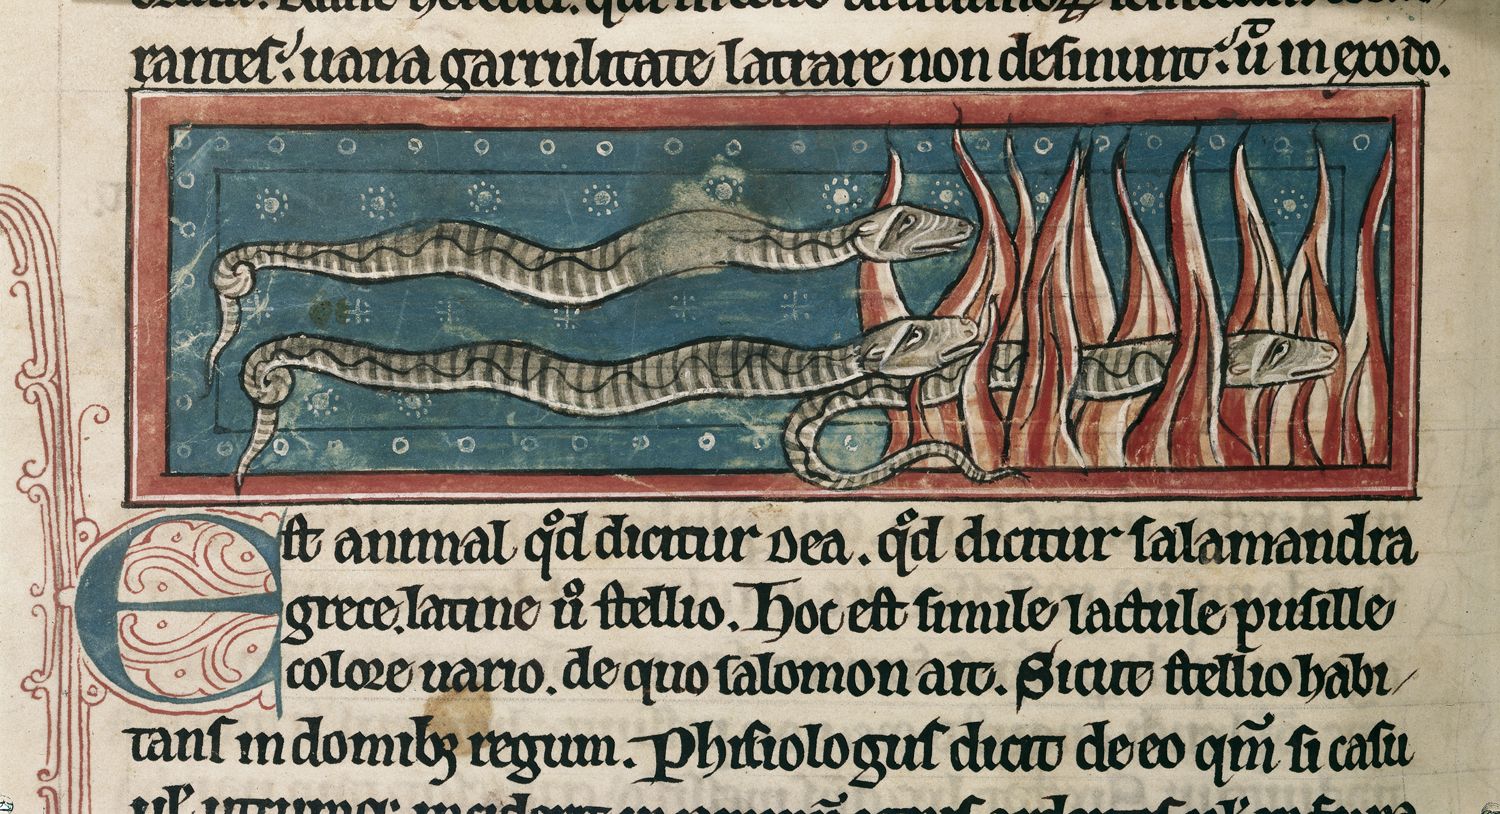 rantes. uana garrulitate latrare non desinunt. ū in exodo.
Est animal qͦd dicitur dea. qͦd dicitur salamandra
grece. latine uͦ stellio. Hoc est simile lactule pusille
colore uario. de quo salomon ait. Sicut stellio habi
tans in domibꝫ regum. Phisiologus dicit de eo qm̄ si casu